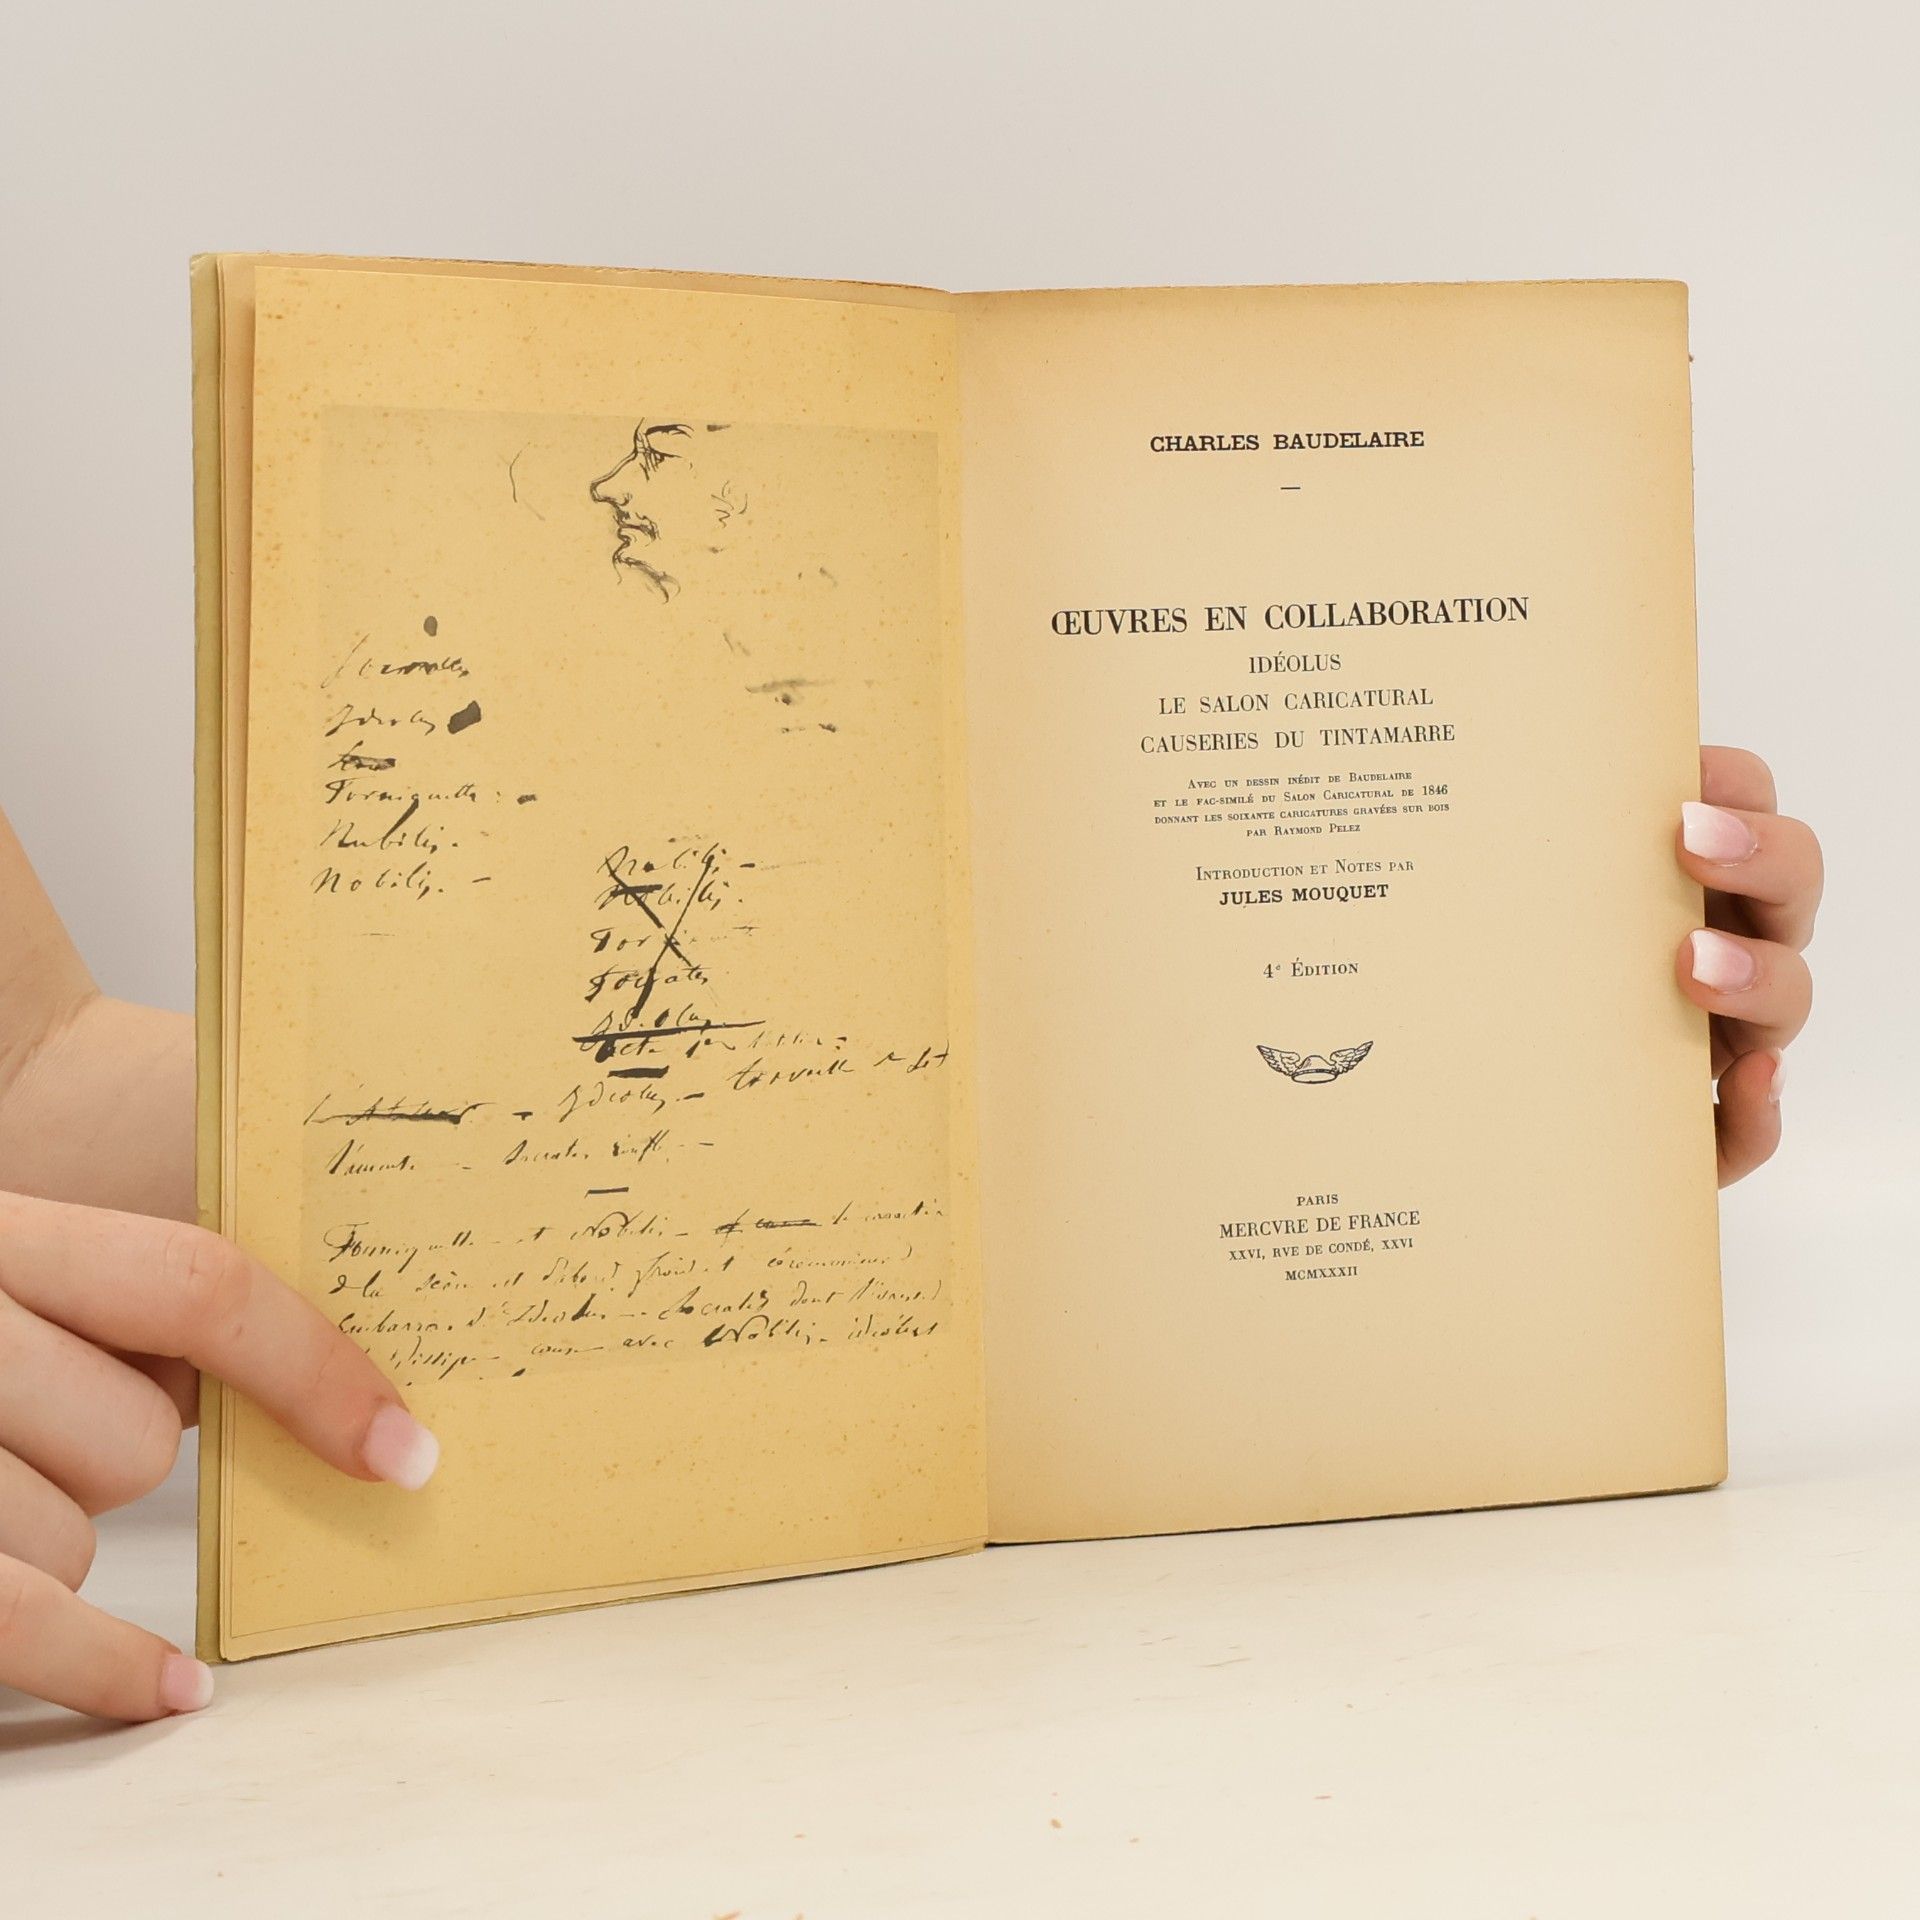 Idéolus
Forniquette :
Nubilis.
Nobilis. —
Nubilis —
Nobilis.
Socrates
Idéolus
Acte 1er
— Idéolus, — travaille
— Socrates ronfle — —
Forniquette — et Nobilis — le caractère
de la scène est d'abord froid et cérémonieux
Embarras d'Idéolus — Socrates dont l'ivresse
avec Nobilis —
CHARLES BAUDELAIRE
—
ŒUVRES EN COLLABORATION
IDÉOLUS
LE SALON CARICATURAL
CAUSERIES DU TINTAMARRE
Avec un dessin inédit de Baudelaire
et le fac-similé du Salon Caricatural de 1846
donnant les soixante caricatures gravées sur bois
par Raymond Pelez
Introduction et Notes par
JULES MOUQUET
4e Édition
PARIS
MERCVRE DE FRANCE
XXVI, RVE DE CONDÉ, XXVI
MCMXXXII